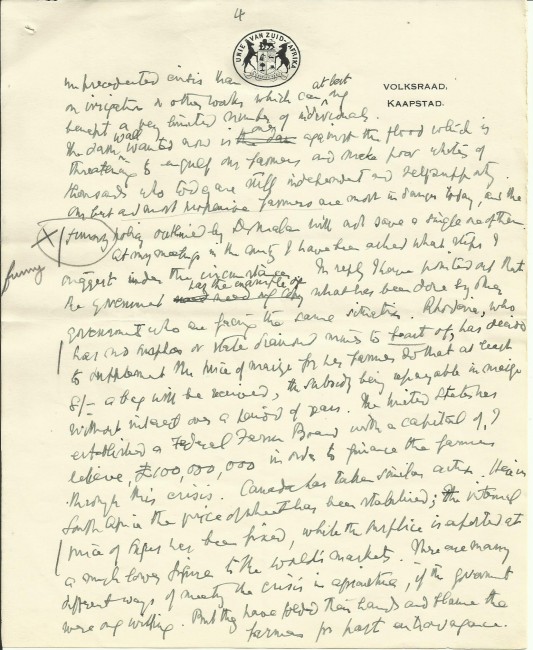 4
UNIE VAN ZUID-AFRIKA
VOLKSRAAD,
KAAPSTAD.
unprecedented crisis than
on irrigation or other works which can at best only
benefit a very limited number of individuals.
The dam wall wanted now is one against the flood which is
threatening to engulf our farmers and make poor whites of
thousands who today are still independent and selfsupporting.
our best and most progressive farmers are most in danger today, and the
X funny policy outlined by Dr Malan will not save a single one of them.
funny
At my meetings in the country I have been asked what steps I
suggest under the circumstances. In reply I have pointed out that
the government has the example of need only copy what has been done by other
governments who are facing the same situation. Rhodesia, who
has no surplus or state diamond mines to boast of, has decided
to supplement the price of maize for her farmers so that at least
8/- a bag will be received, the subsidy being repayable in maize
without interest over a period of years. The United States has
established a Federal Farm Board with a capital of, I
believe, £100,000,000 in order to finance the farmers
through this crisis. Canada has taken similar action. Here in
South Africa the price of wheat has been stabilised; the internal
price of sugar has been fixed, while the surplus is exported at
a much lower figure to the world's markets. There are many
different ways of meeting the crisis in agriculture, if the government
were only willing. But they have folded their hands and blame the
farmers for past extravagance.